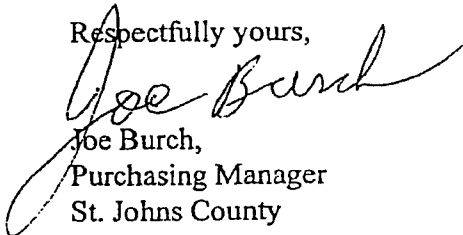 Respectfully yours,
Joe Burch
Joe Burch,
Purchasing Manager
St. Johns County